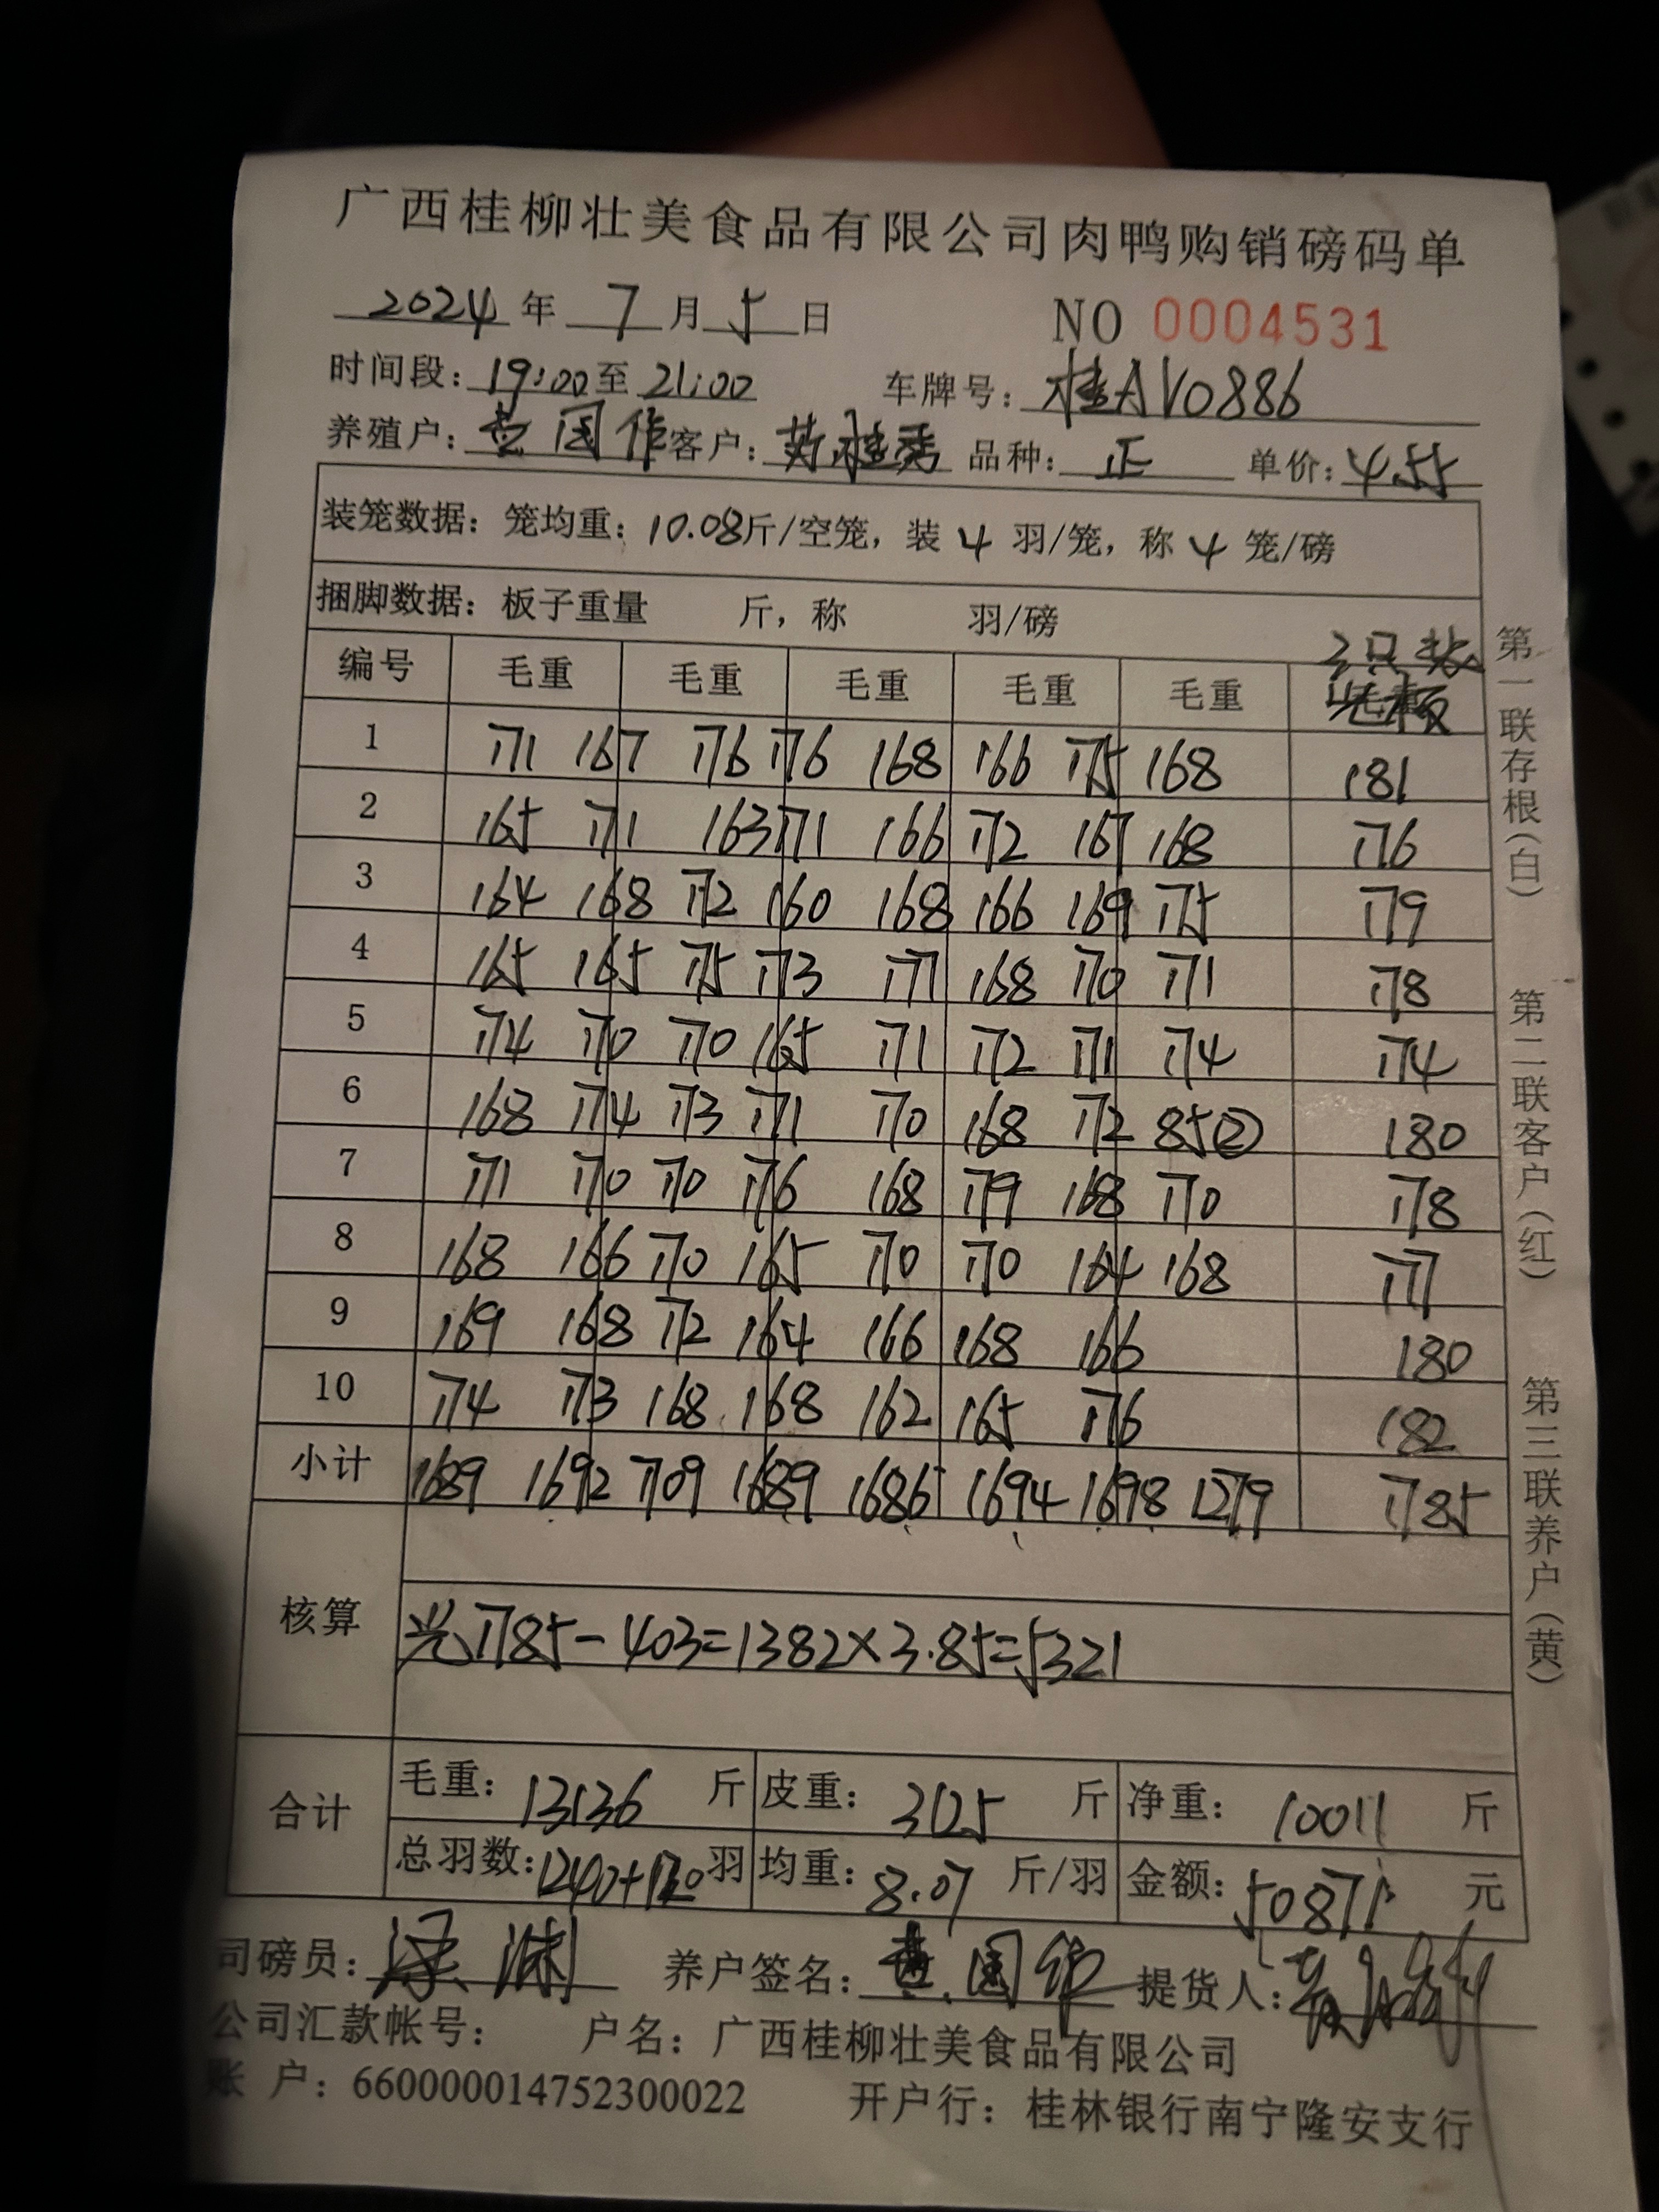 广西桂柳壮美食品有限公司肉鸭购销磅码单
2024年7月5日 NO 0004531
时间段：19:00至21:00 车牌号：桂AV0886
养殖户：黄国作 客户：黄桂秀 品种：正 单价：4.55
装笼数据：笼均重：10.08斤/空笼，装4羽/笼，称4笼/磅
捆脚数据：板子重量 斤，称 羽/磅
3只装
编号 毛重 毛重 毛重 毛重 毛重 光板
1 171 167 176 176 168 166 175 168 181
2 165 171 163 171 166 172 167 168 176
3 164 168 172 160 168 166 169 175 179
4 165 165 175 173 177 168 170 171 178
5 174 170 170 165 171 172 171 174 174
6 168 174 173 171 170 168 172 85② 180
7 171 170 170 176 168 179 168 170 178
8 168 166 170 165 170 170 164 168 177
9 169 168 172 164 166 168 166 180
10 174 173 168 168 162 165 176 182
小计 1689 1692 1709 1689 1686 1694 1698 1279 1785
核算
光1785-403=1382×3.85=5321
合计
毛重：13136斤 皮重：3125斤 净重：10011斤
总羽数：1240+120羽 均重：8.07斤/羽 金额：50871元
司磅员：梁 养户签名：黄国作 提货人：
公司汇款帐号： 户名：广西桂柳壮美食品有限公司
账 户：660000014752300022 开户行：桂林银行南宁隆安支行
第一联存根（白） 第二联客户（红） 第三联养户（黄）